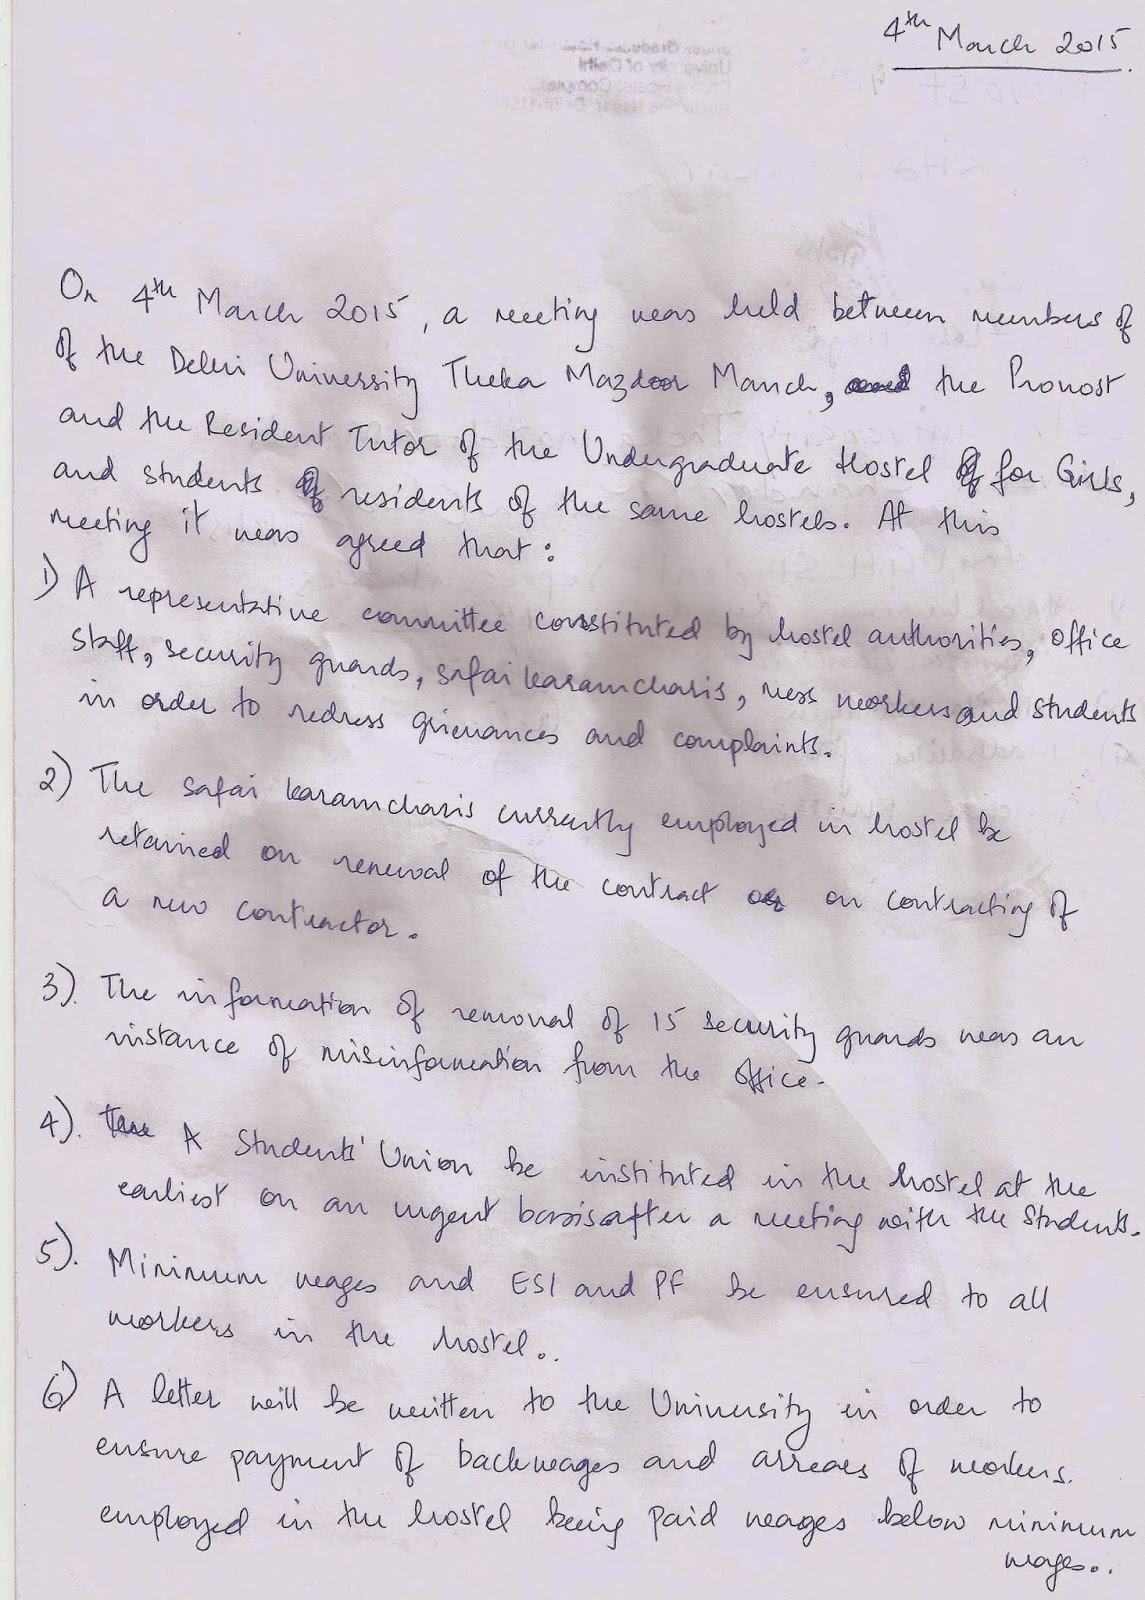 4th March 2015
On 4th March 2015, a meeting was held between members of
of the Delhi University Theka Mazdoor Manch, and the Provost
and the Resident Tutor of the Undergraduate Hostel of for Girls,
and students of residents of the same hostels. At this
meeting it was agreed that:
1) A representative committee constituted by hostel authorities, office
staff, security guards, safai karamcharis, mess workers and students
in order to redress grievances and complaints.
2) The safai karamcharis currently employed in hostel be
retained on renewal of the contract or on contracting of
a new contractor.
3). The information of removal of 15 security guards was an
instance of misinformation from the office.
4). A Students' Union be instituted in the hostel at the
earliest on an urgent basis after a meeting with the students.
5). Minimum wages and ESI and PF be ensured to all
workers in the hostel..
6) A letter will be written to the University in order to
ensure payment of backwages and arrears of workers.
employed in the hostel being paid wages below minimum
wages..